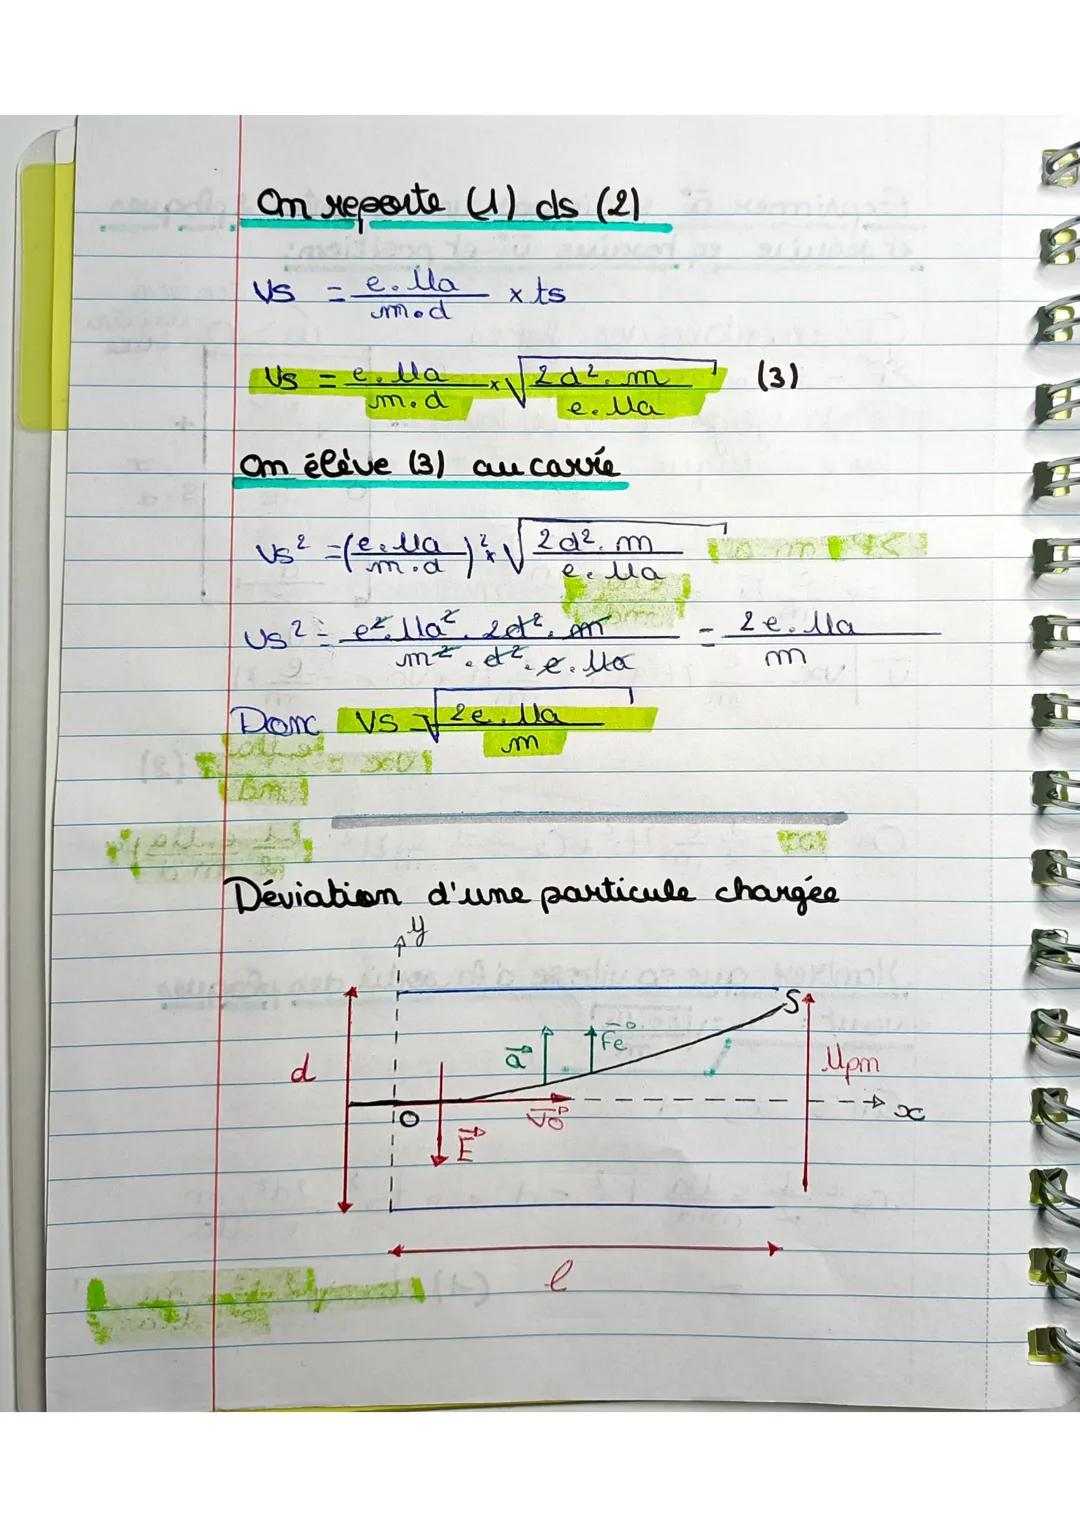 On reporte (1) ds (2)
Vs = e.Ua / m.d × ts
Vs = e.Ua / m.d × √(2d². m / e.Ua) (3)
On élève (3) au carrée
Vs² = (e.Ua / m.d)² × √(2d². m / e.Ua)
Vs² = e². Ua². 2d². m / m². d². e. Ua = 2e. Ua / m
Donc Vs = √(2e. Ua / m)
Déviation d'une particule chargée
y
S
d
a⃗
Fe⃗
Upm
O
V0⃗
x
E⃗
l